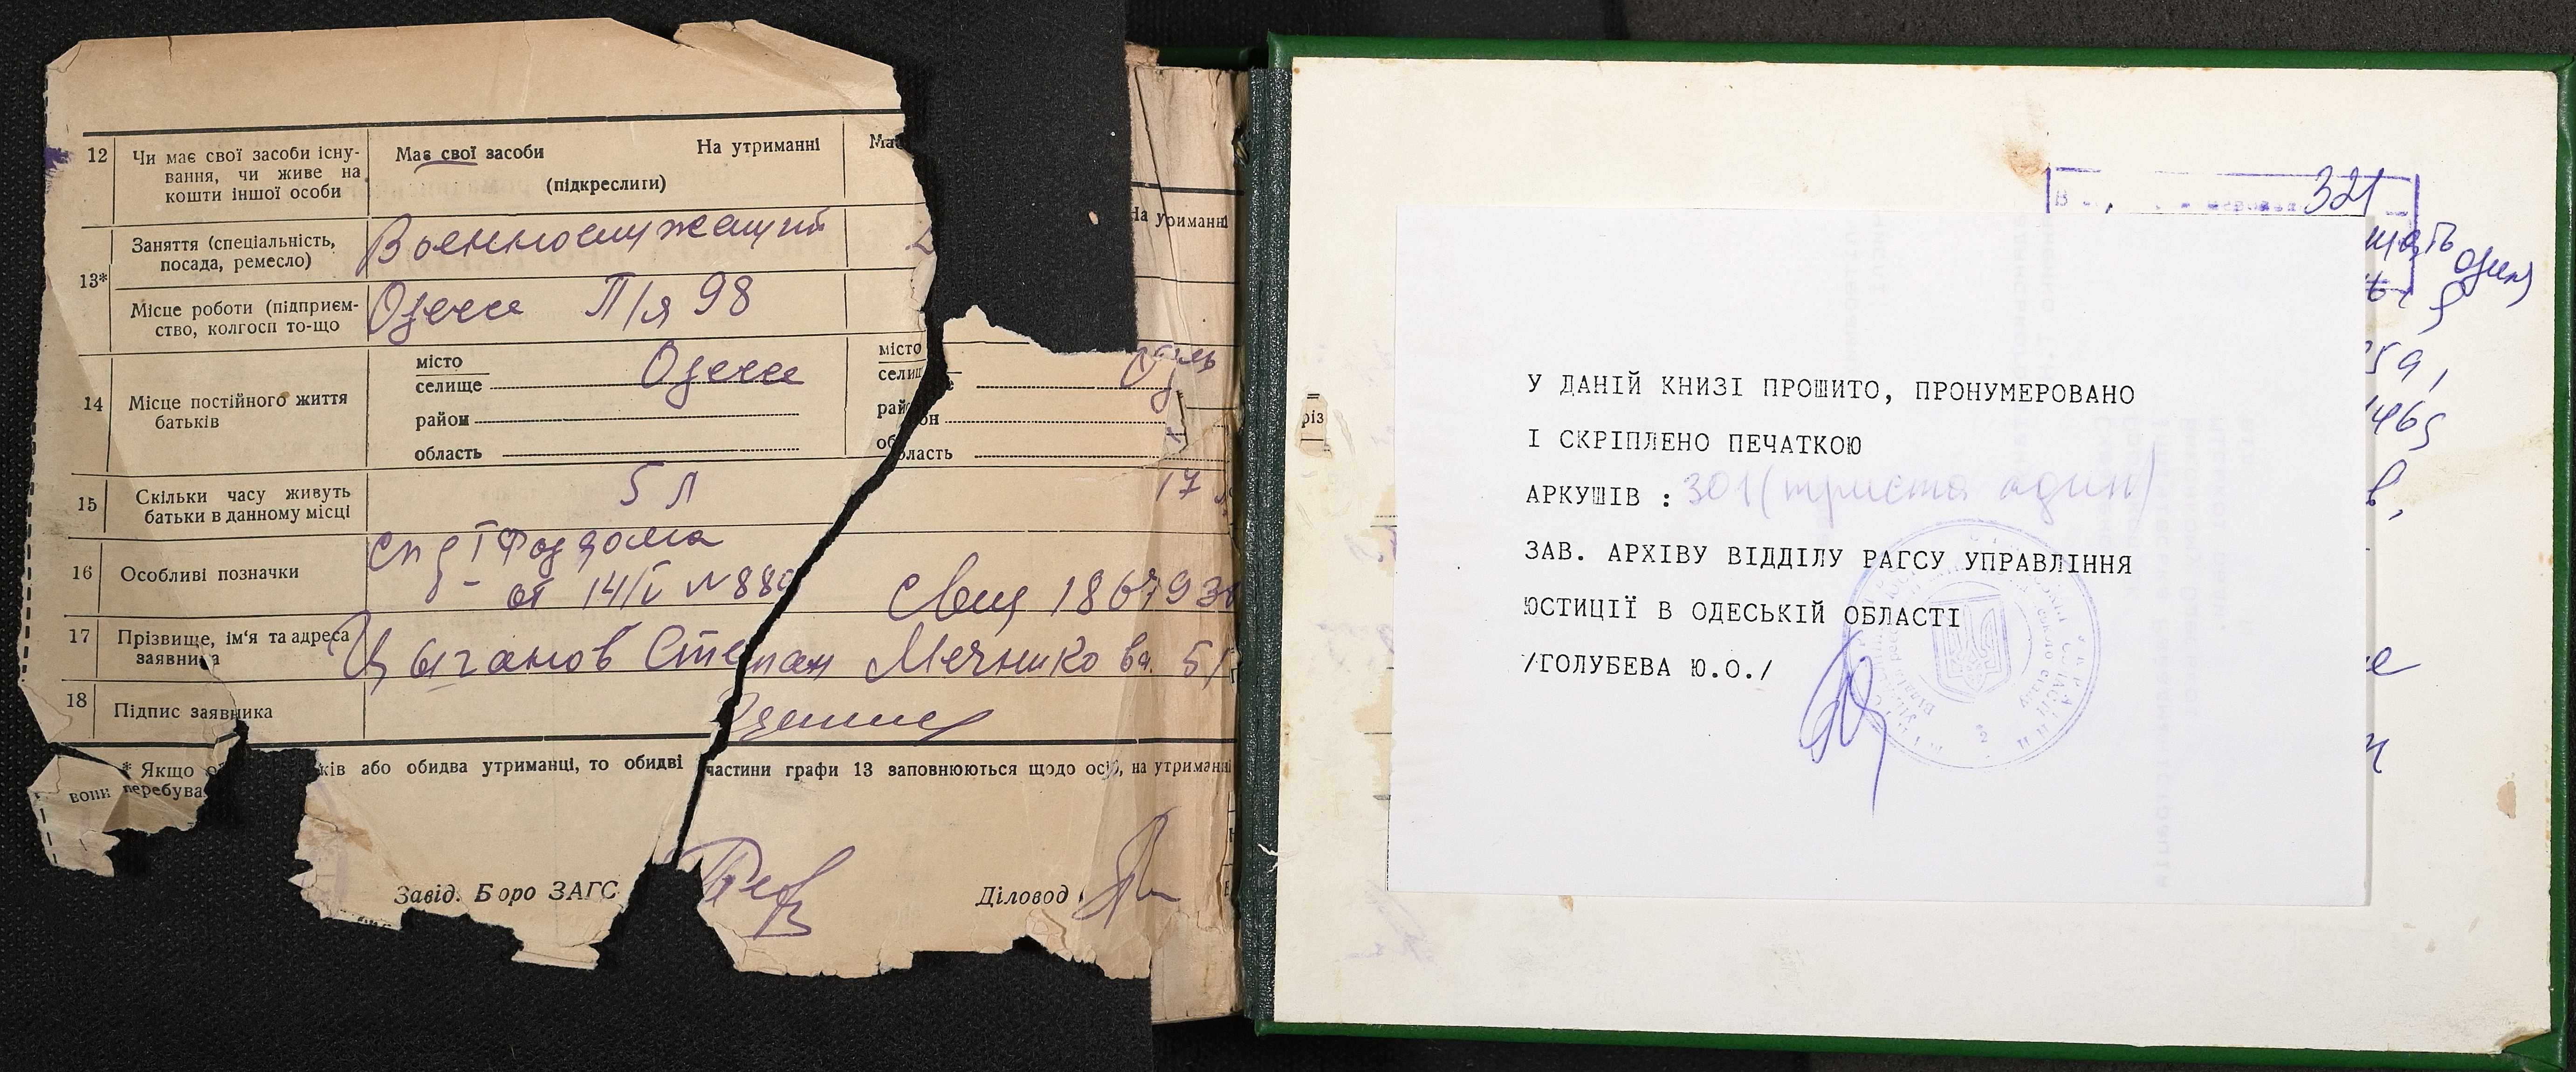 12 Чи має свої засоби існу-
вання, чи живе на
кошти іншої особи
Має свої засоби На утриманні Має
(підкреслити)
На утриманні
13* Заняття (спеціальність,
посада, ремесло)
Военнослужащий
Місце роботи (підприєм-
ство, колгосп то-що
Одесса П/я 98
14 Місце постійного життя
батьків
місто
селище Одесса
район
область
місто
селище
район
область
15 Скільки часу живуть
батьки в данному місці
5 л 17
16 Особливі позначки
от 14/V №880
17 Прізвище, ім'я та адреса
заявника
Цыганов Степан Мечникова 51
18 Підпис заявника
* Якщо ків або обидва утриманці, то обидві частини графи 13 заповнюються щодо осіб, на утриманні
вони перебува
Завід. Боро ЗАГС Діловод
321
різ
У ДАНІЙ КНИЗІ ПРОШИТО, ПРОНУМЕРОВАНО
І СКРІПЛЕНО ПЕЧАТКОЮ
АРКУШІВ : 301 (триста один)
ЗАВ. АРХІВУ ВІДДІЛУ РАГСУ УПРАВЛІННЯ
ЮСТИЦІЇ В ОДЕСЬКІЙ ОБЛАСТІ
/ГОЛУБЕВА Ю.О./